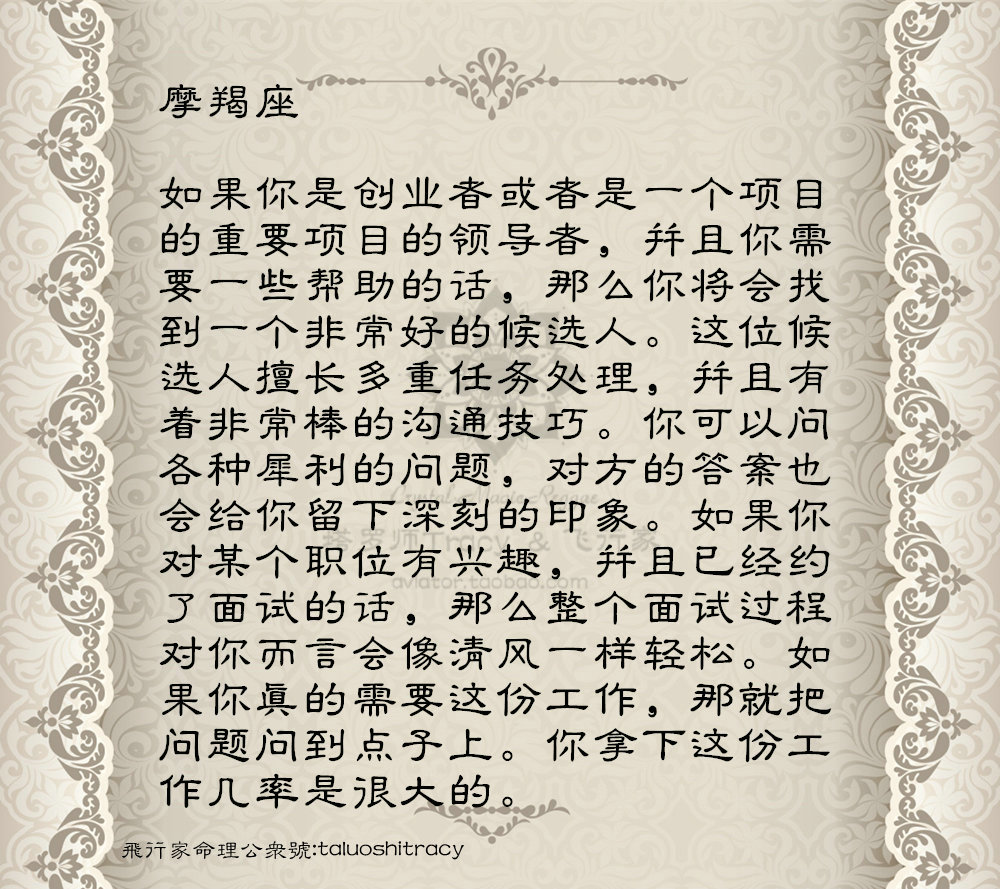 摩羯座
如果你是创业者或者是一个项目
的重要项目的领导者，并且你需
要一些帮助的话，那么你将会找
到一个非常好的候选人。这位候
选人擅长多重任务处理，并且有
着非常棒的沟通技巧。你可以问
各种犀利的问题，对方的答案也
会给你留下深刻的印象。如果你
对某个职位有兴趣，并且已经约
了面试的话，那么整个面试过程
对你而言会像清风一样轻松。如
果你真的需要这份工作，那就把
问题问到点子上。你拿下这份工
作几率是很大的。
Crystal Magic Reogge
塔罗师Tracy & 飞行家
aviator.taobao.com
飛行家命理公衆號:taluoshitracy